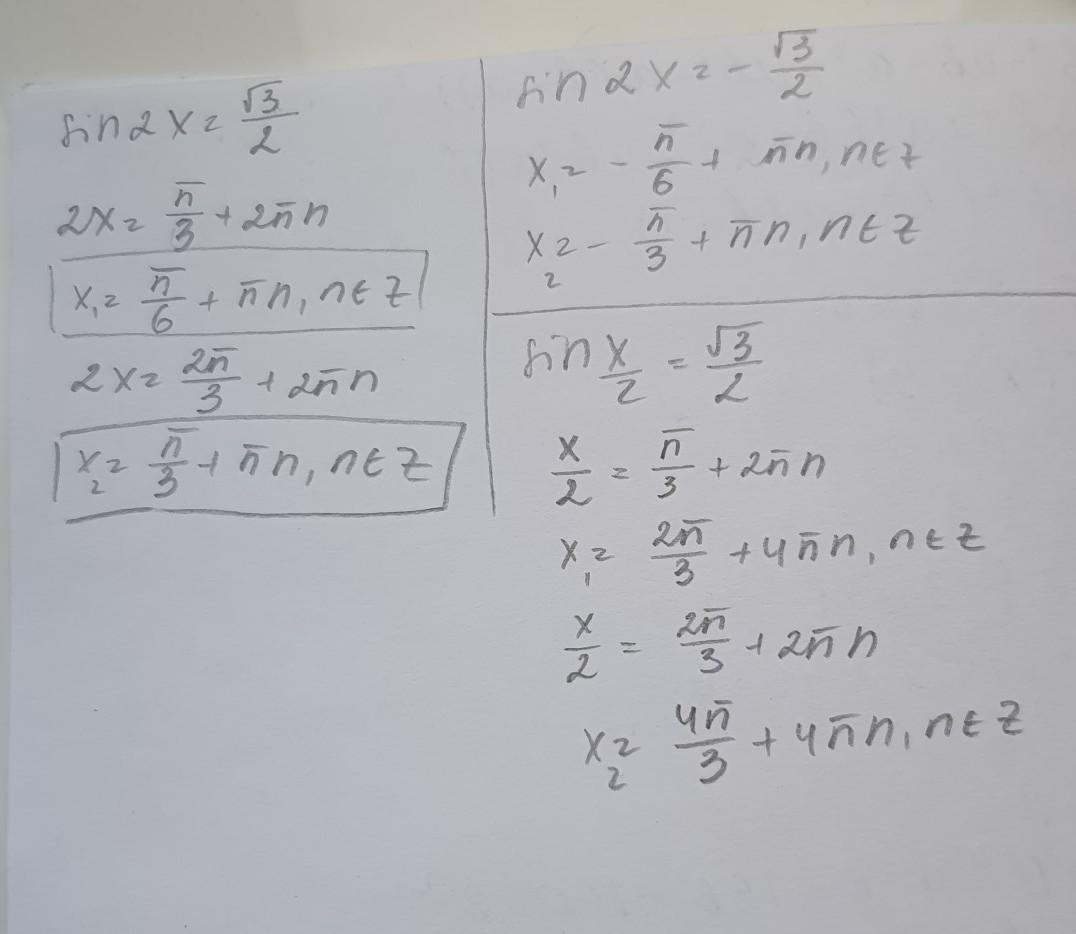 sin 2x = √3/2
2x = π/3 + 2πn
x₁ = π/6 + πn, n ∈ Z
2x = 2π/3 + 2πn
x₂ = π/3 + πn, n ∈ Z
sin 2x = - √3/2
x₁ = - π/6 + πn, n ∈ Z
x₂ = - π/3 + πn, n ∈ Z
sin x/2 = √3/2
x/2 = π/3 + 2πn
x₁ = 2π/3 + 4πn, n ∈ Z
x/2 = 2π/3 + 2πn
x₂ = 4π/3 + 4πn, n ∈ Z